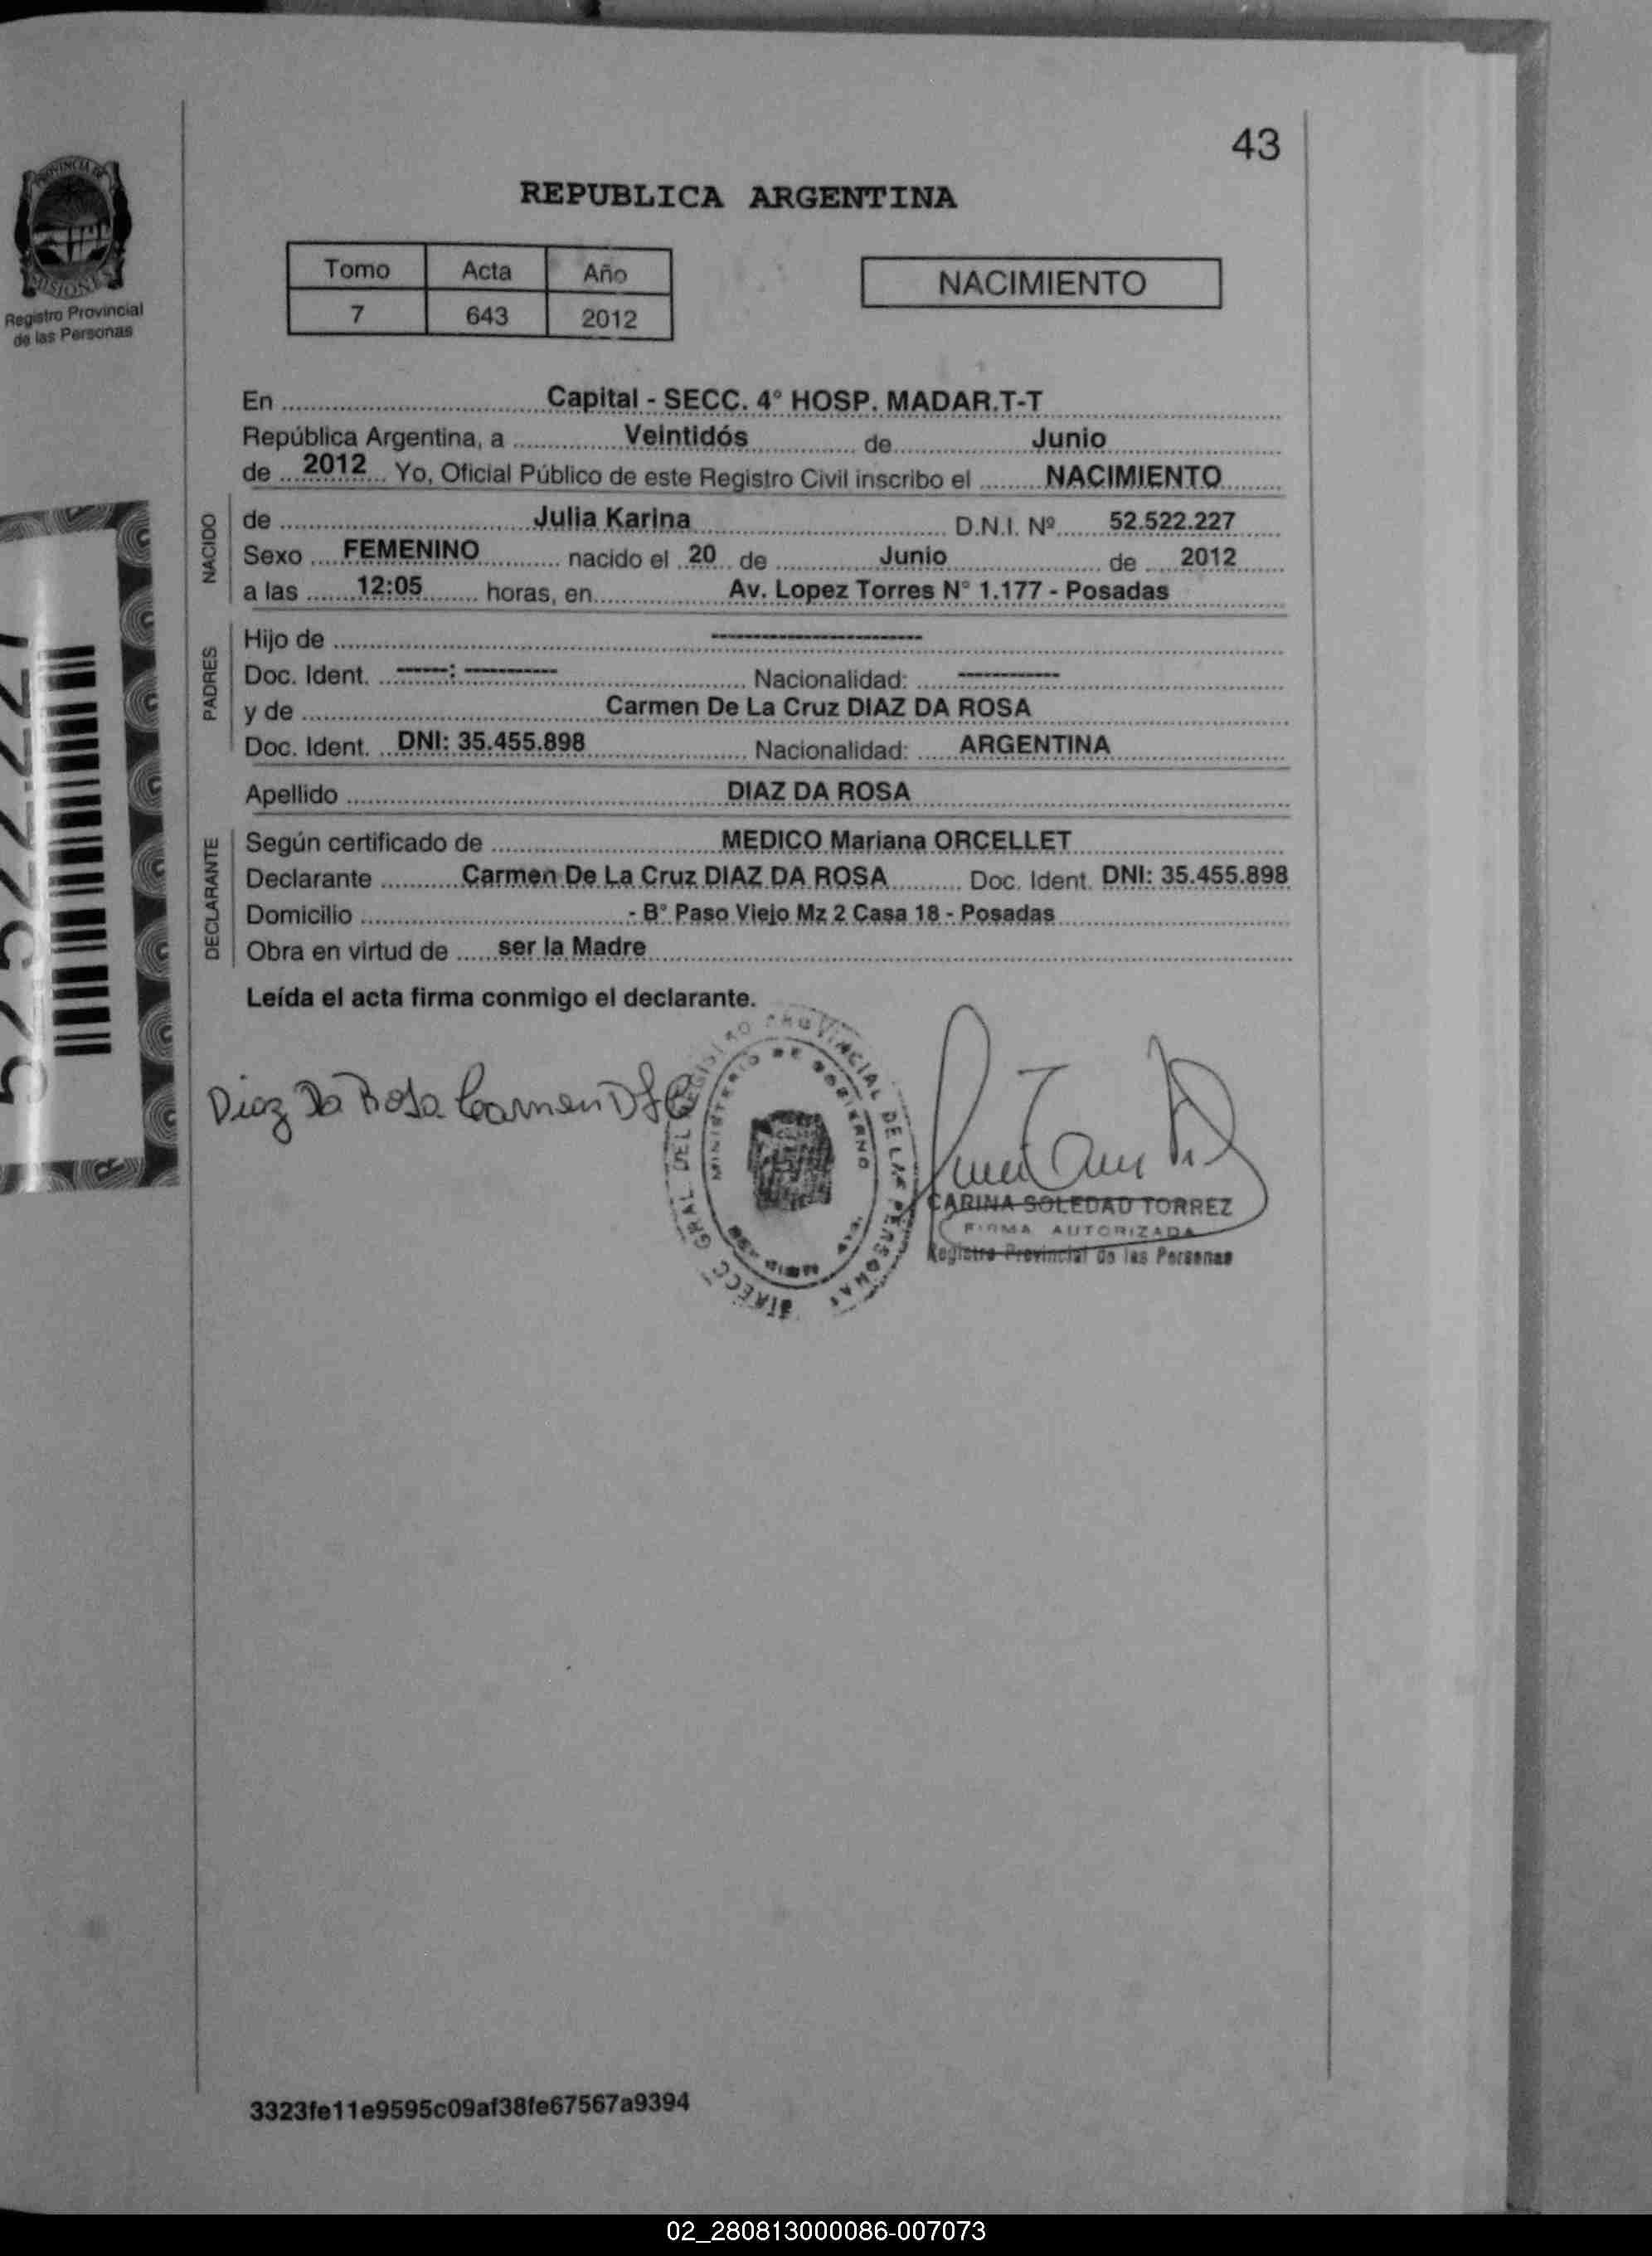 43
PROVINCIA DE
MISIONES
Registro Provincial
de las Personas
REPUBLICA ARGENTINA
Tomo Acta Año
7 643 2012
NACIMIENTO
En Capital - SECC. 4° HOSP. MADAR.T-T
República Argentina, a Veintidós de Junio
de 2012 Yo, Oficial Público de este Registro Civil inscribo el NACIMIENTO
NACIDO
de Julia Karina D.N.I. Nº 52.522.227
Sexo FEMENINO nacido el 20 de Junio de 2012
a las 12:05 horas, en Av. Lopez Torres N° 1.177 - Posadas
PADRES
Hijo de ------------------------
Doc. Ident. ------: ----------- Nacionalidad: ------------
y de Carmen De La Cruz DIAZ DA ROSA
Doc. Ident. DNI: 35.455.898 Nacionalidad: ARGENTINA
Apellido DIAZ DA ROSA
DECLARANTE
Según certificado de MEDICO Mariana ORCELLET
Declarante Carmen De La Cruz DIAZ DA ROSA Doc. Ident. DNI: 35.455.898
Domicilio - B° Paso Viejo Mz 2 Casa 18 - Posadas
Obra en virtud de ser la Madre
Leída el acta firma conmigo el declarante.
Diaz Da Rosa Carmen DLC
DIRECC GRAL DEL REGISTRO PROVINCIAL DE LAS PERSONAS
MINISTERIO DE GOBIERNO
CARINA SOLEDAD TORREZ
FIRMA AUTORIZADA
Registro Provincial de las Personas
3323fe11e9595c09af38fe67567a9394
02_280813000086-007073